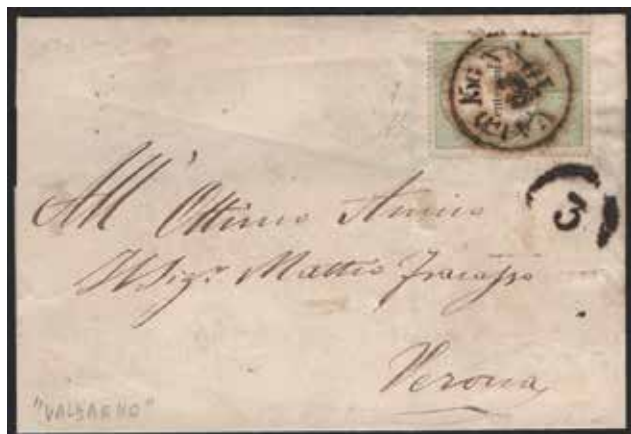 All' Ottimo Amico
Il Sigr. Matteo Fracasso
Verona
"VALDAGNO"